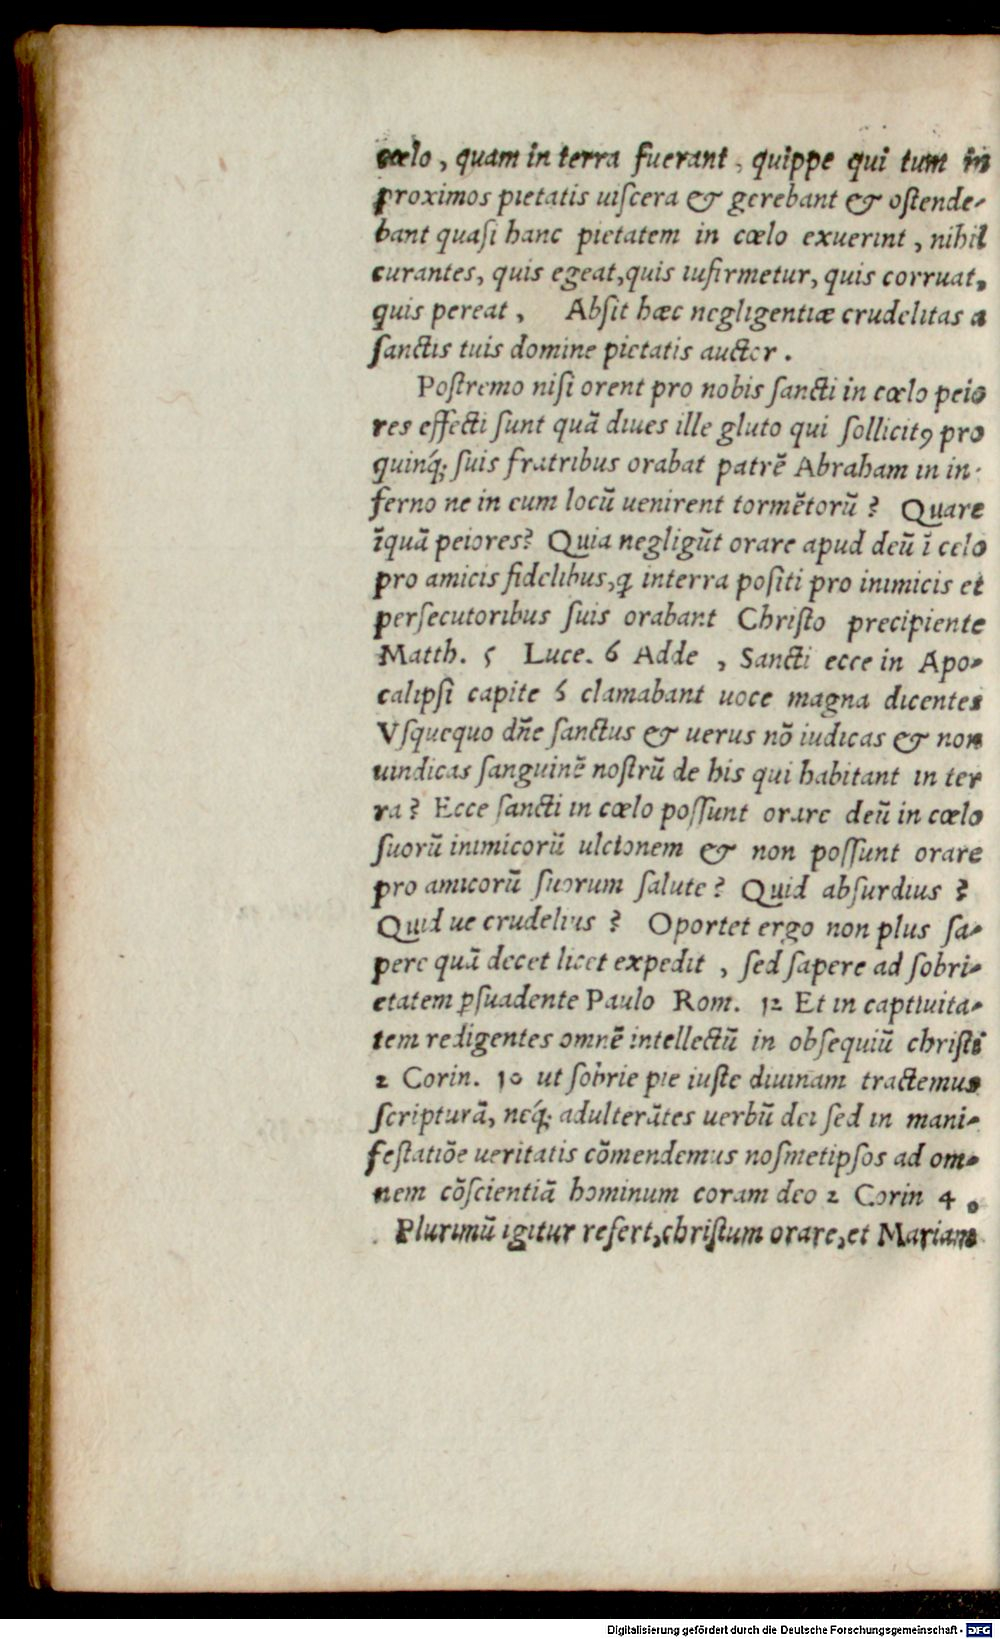 cœlo, quam in terra fuerant, quippe qui tum in
proximos pietatis uiſcera & gerebant & oſtende-
bant quaſi hanc pietatem in cœlo exuerint, nihil
curantes, quis egeat, quis iufirmetur, quis corruat,
quis pereat, Abſit hæc negligentiæ crudelitas a
ſanctis tuis domine pietatis aucter.
Poſtremo niſi orent pro nobis ſancti in cœlo peio
res effecti ſunt quā diues ille gluto qui ſollicitꝯ pro
quinq́; ſuis fratribus orabat patrē Abraham in in-
ferno ne in eum locū uenirent tormētorū? Quare
īquā peiores? Quia negligūt orare apud deū ī celo
pro amicis fidelibus, ꝗ interra poſiti pro inimicis et
perſecutoribus ſuis orabant Chriſto precipiente
Matth. 5 Luce. 6 Adde, Sancti ecce in Apo-
calipſi capite 6 clamabant uoce magna dicentes
Vſquequo dn̄e ſanctus & uerus nō iudicas & non
uindicas ſanguinē noſtrū de his qui habitant in ter
ra? Ecce ſancti in cœlo poſſunt orare deū in cœlo
ſuorū inimicorū ulctonem & non poſſunt orare
pro amicorū ſuorum ſalute? Quid abſurdius?
Quid ue crudelius? Oportet ergo non plus ſa-
pere quā decet licet expedit, ſed ſapere ad ſobri-
etatem ꝑſuadente Paulo Rom. 12 Et in captiuita-
tem redigentes omnē intellectū in obſequiū chriſti
2 Corin. 10 ut ſobrie pie iuſte diuinam tractemus
ſcripturā, neq́; adulterātes uerbū dei ſed in mani-
feſtatiōe ueritatis cōmendemus noſmetipſos ad om-
nem cōſcientiā hominum coram deo 2 Corin 4.
Plurimū igitur refert, chriſtum orare, et Mariam
Digitalisierung gefördert durch die Deutsche Forschungsgemeinschaft - DFG